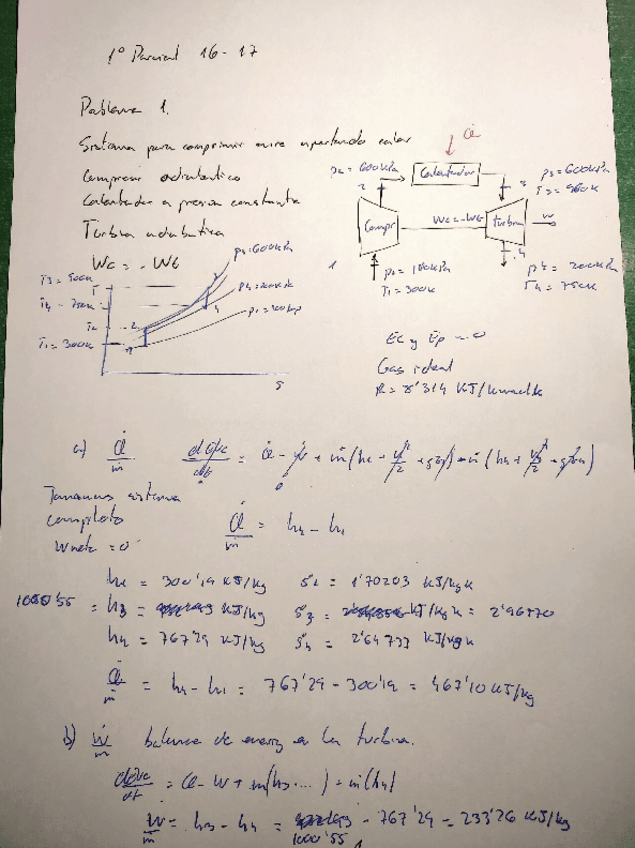 1º Parcial 16-17
Problema 1.
Sistema para comprimir aire aportando calor
Compresor adiabático
Calentador a presión constante
Turbina adiabática
Wc = - Wt
Q̇
p2 = 600kPa
Calentador
p3 = 600kPa
2
3
Compr
Wc = -Wt
Turbina
w
1
4
p1 = 100kPa
T1 = 300K
p4 = 200kPa
T4 = 750K
T
p3 = 600kPa
p4 = 200kPa
T4 = 750K
T2
2
4
T1 = 300K
s
Ec y Ep = 0
Gas ideal
R = 8'314 KJ/kmolK
a) Q̇/ṁ
Tomamos sistema
completo
Wneto = 0
Q̇/ṁ = h4 - h1
h1 = 300'19 KJ/kg s°1 = 1'70203 KJ/kgK
1000'55 = h3 = KJ/kg s°3 = KJ/kgK = 2'96770
h4 = 767'29 KJ/kg s°4 = 2'64737 KJ/kgK
Q̇/ṁ = h4 - h1 = 767'29 - 300'19 = 467'10 KJ/kg
b) Ẇ/ṁ balance de energ en la turbina.
Ẇ/ṁ = h3 - h4 = 1000'55 - 767'29 = 233'26 KJ/kg